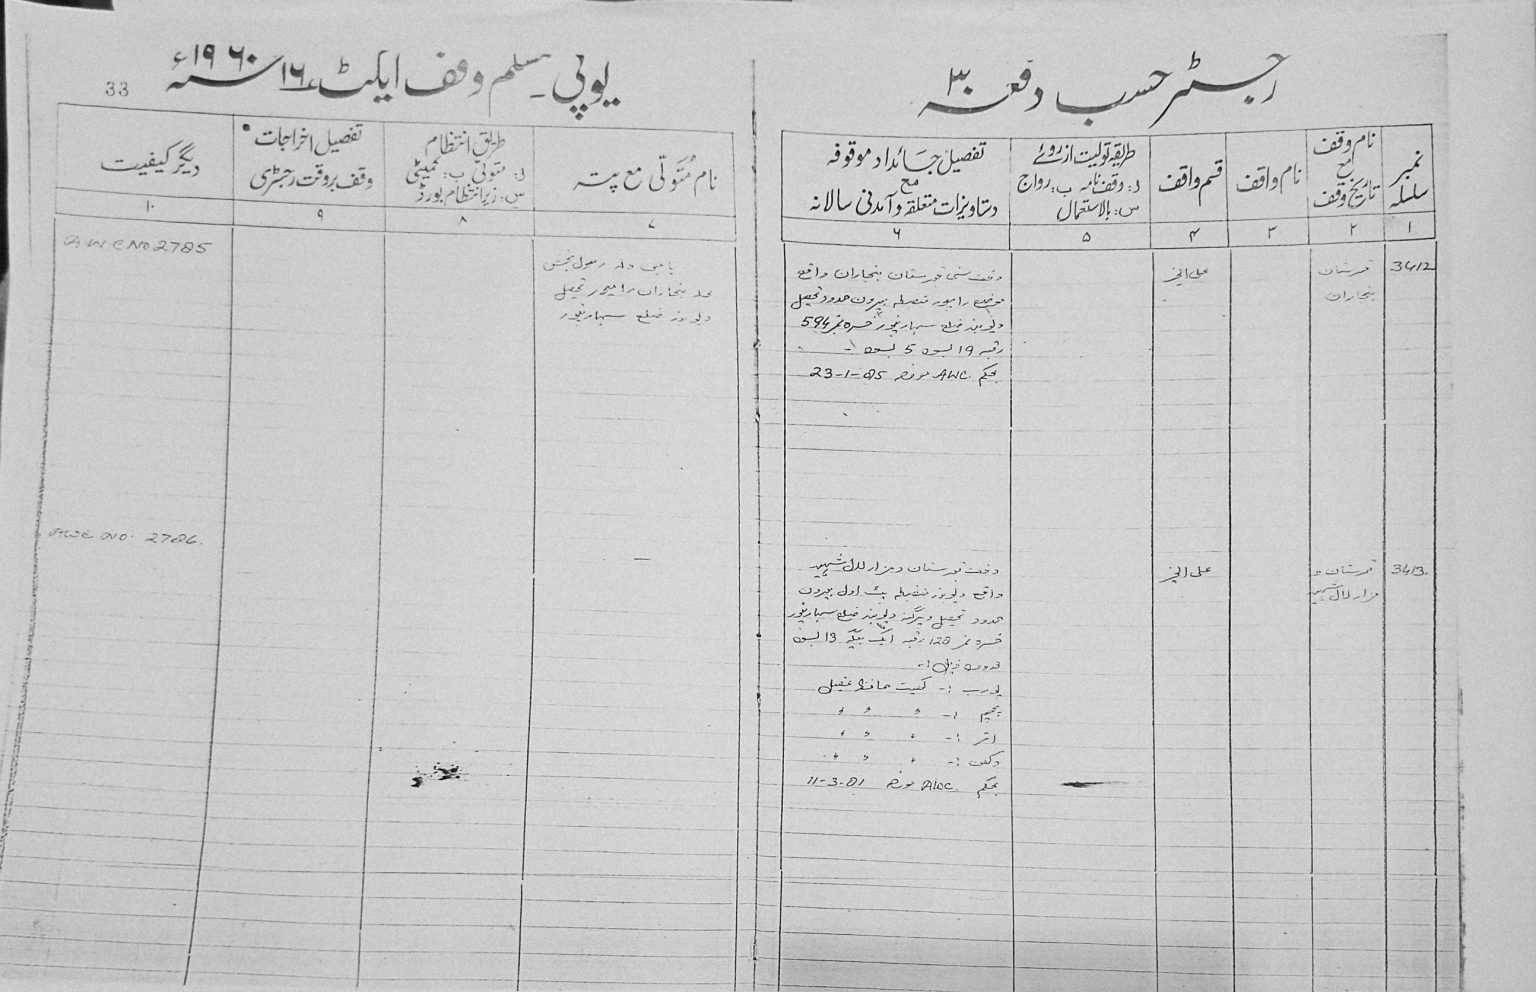 رجسٹر حسب دفعہ ۳۰
یوپی۔ مسلم وقف ایکٹ ۱۶ ۱۹۶۰ء
33
نمبر سلسلہ
نام وقف مع تاریخ وقف
نام واقف
قسم واقف
طریقہ تولیت ازروئے
ا: وقف نامہ ب: رواج
س: بالاستعمال
تفصیل جائداد موقوفہ
مع
دستاویزات متعلقہ و آمدنی سالانہ
نام متولّی مع پتہ
طریق انتظام
ا: متولّی ب: کمیٹی
س: زیر انتظام بورڈ
تفصیل اخراجات
وقف بروقت رجسٹری
دیگر کیفیت
۱
۲
۳
۴
۵
۶
۷
۸
۹
۱۰
3412
قبرستان
بنجاران
علی الخیر
وقف سنی قبرستان بنجاران واقع
موضع رامپور منصلہ بیرون حدود تحصیل
دیوبند ضلع سہارنپور خسرہ نمبر 594
رقبہ 19 بسوہ 5 بسوہ
بحکم AWC. مورخہ 23-1-85
ولد رسول بخش
محلہ بنجاران رامپور تحصیل
دیوبند ضلع سہارنپور
A.W.C No 2785
3413.
قبرستان و
مزار لال شہید
علی الخیر
وقف قبرستان و مزار لال شہید
واقع دیوبند منصلہ اول بیرون
حدود تحصیل و پرگنہ دیوبند ضلع سہارنپور
خسرہ نمبر 128 رقبہ ایک بیگہ 13 بسوہ
حدود ذیل :-
پورب :- کھیت حافظ
پچھم :- " " "
اتر :- " " "
دکھن :- " " "
بحکم AWC. مورخہ 11-3-81
AWC NO. 2786.